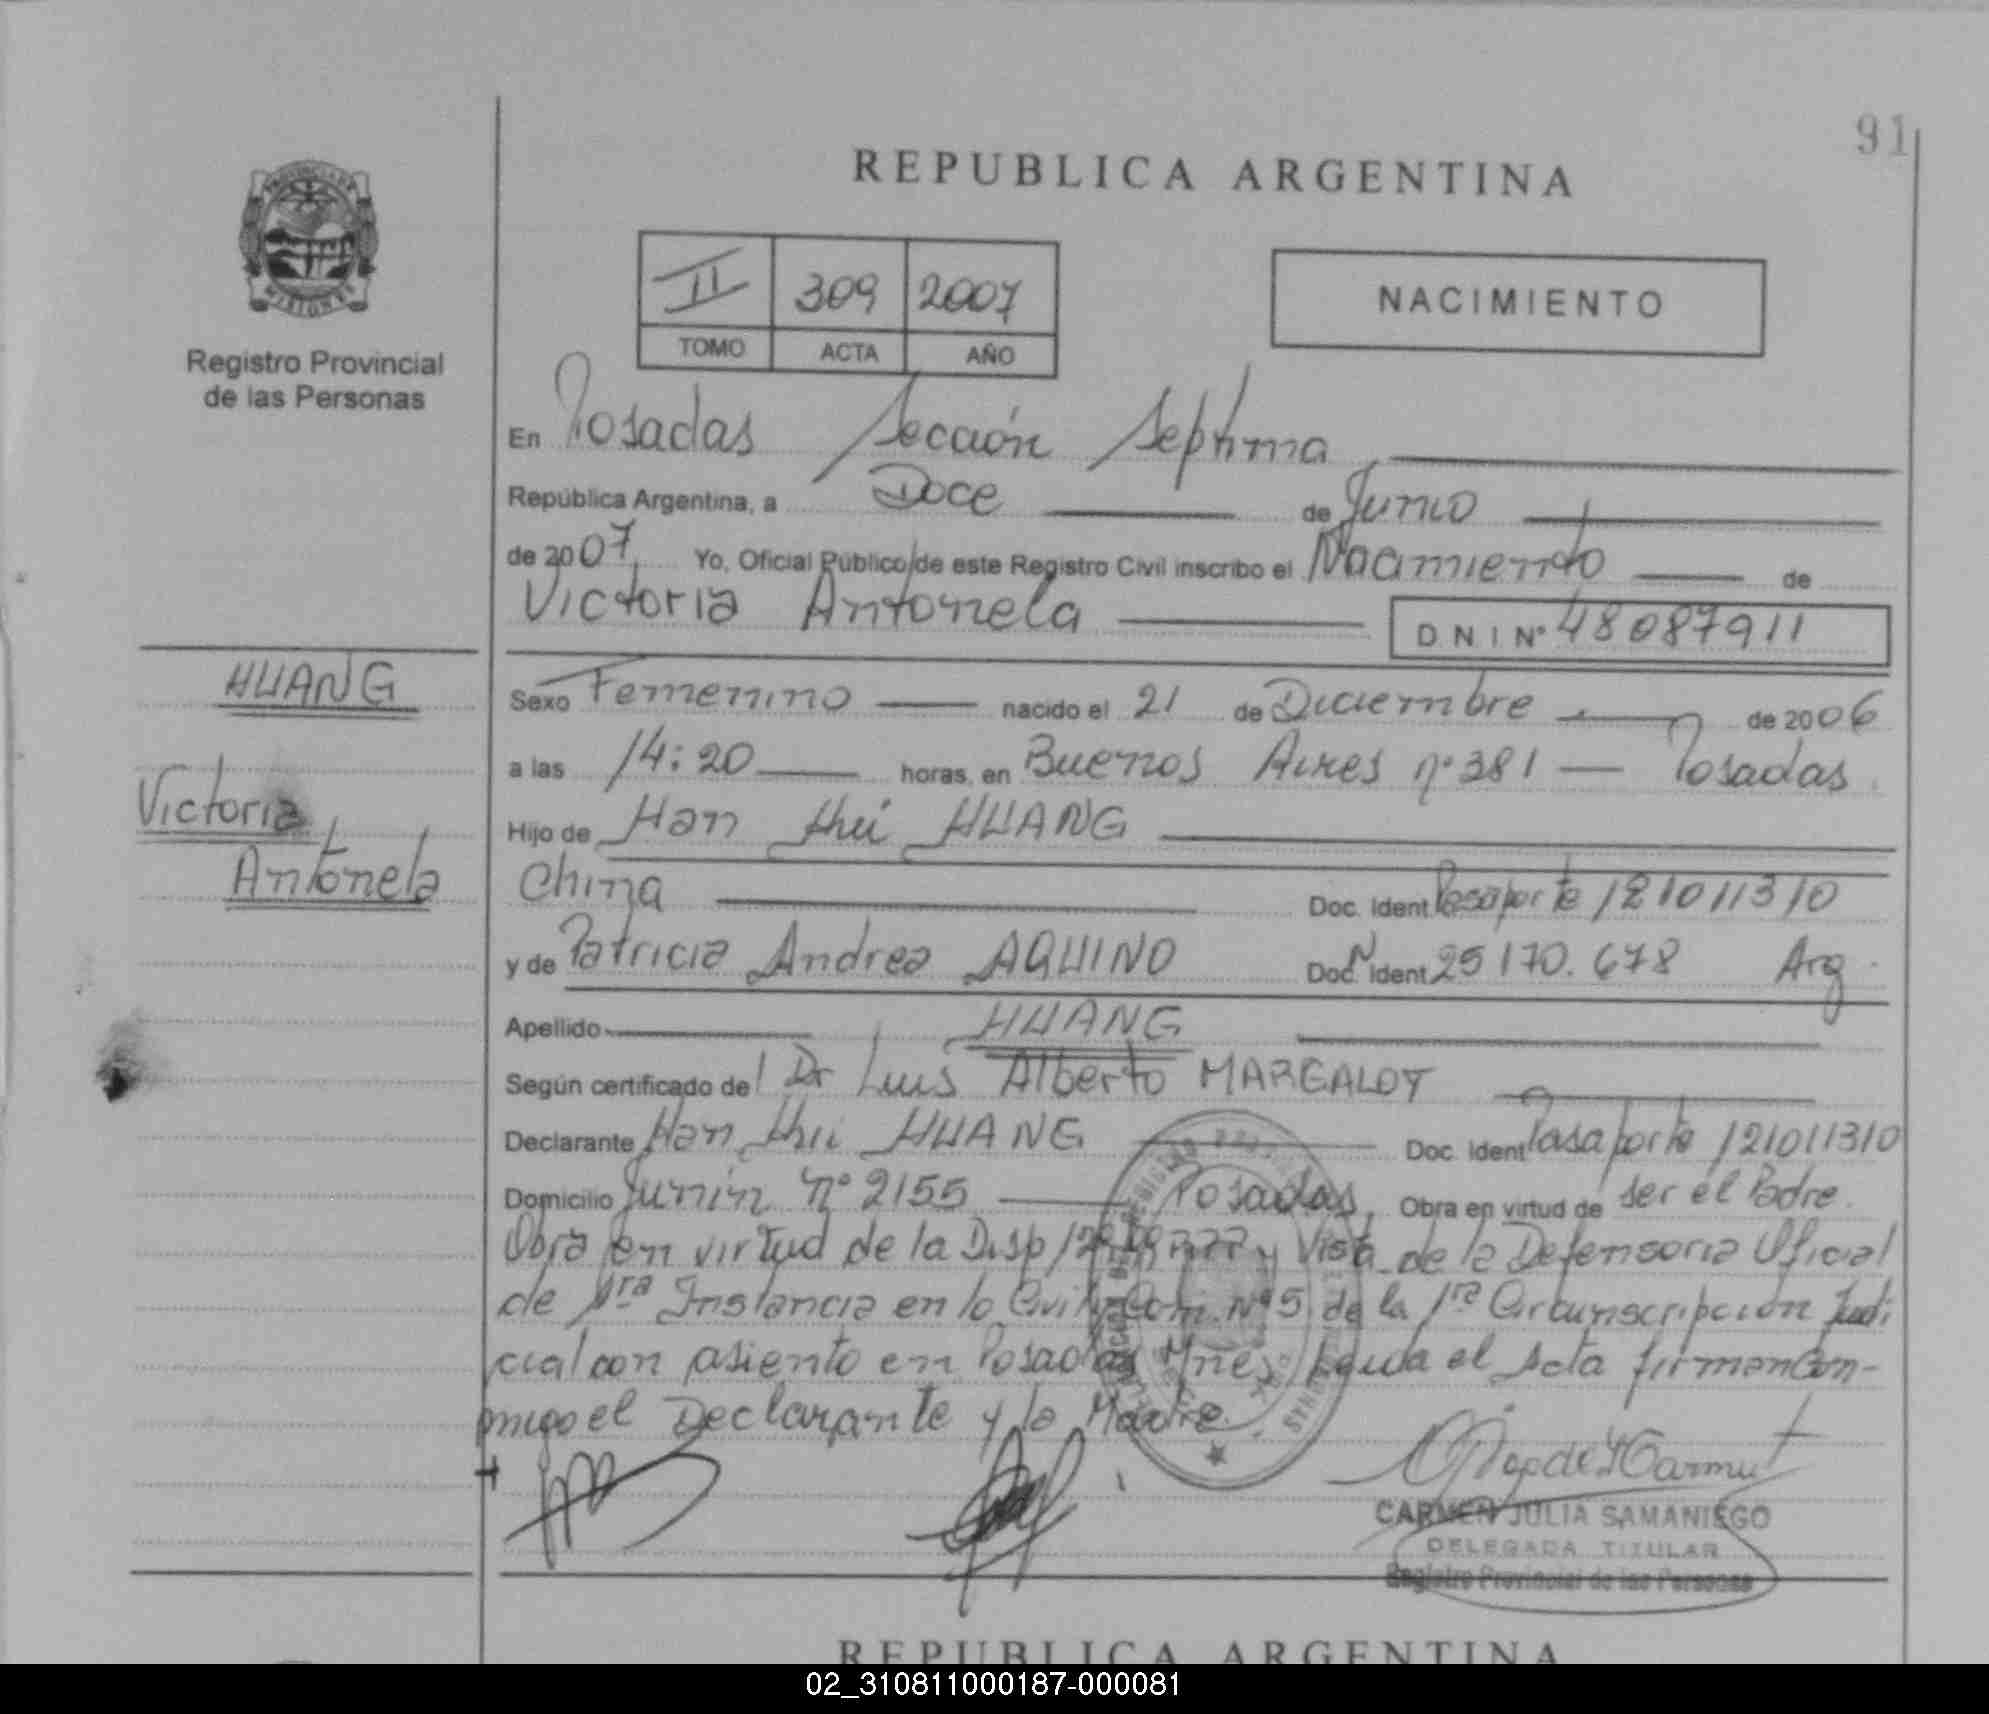 91
REPUBLICA ARGENTINA
PROVINCIA DE
MISIONES
Registro Provincial
de las Personas
II 309 2007
TOMO ACTA AÑO
NACIMIENTO
En Posadas Sección Septima
República Argentina, a Doce de Junio
de 2007 Yo, Oficial Público de este Registro Civil inscribo el Nacimiento de
Victoria Antonela D.N.I. Nº 48087911
HUANG
Victoria
Antonela
Sexo Femenino nacido el 21 de Diciembre de 2006
a las 14:20 horas, en Buenos Aires nº 381 — Posadas.
Hijo de Han Hui HUANG
China Doc. Ident. Pasaporte 121011310
y de Patricia Andrea AQUINO Doc. Ident. 25170.678 Arg.
Apellido HUANG
Según certificado del Dr Luis Alberto MARGALOT
Declarante Han Hui HUANG Doc. Ident. Pasaporte 121011310
Domicilio Junín nº 2155 Posadas, Obra en virtud de ser el Padre.
Obra en virtud de la Disp y Vista de la Defensoria Oficial
de 1ra Instancia en lo Civil y Com. Nº 5 de la 1ra Circunscripción Judi
cial con asiento en Posadas Mnes. el Acta firman Con-
migo el Declarante y la Madre.
CARMEN JULIA SAMANIEGO
DELEGADA TITULAR
Registro Provincial de las Personas
REPUBLICA ARGENTINA
02_310811000187-000081